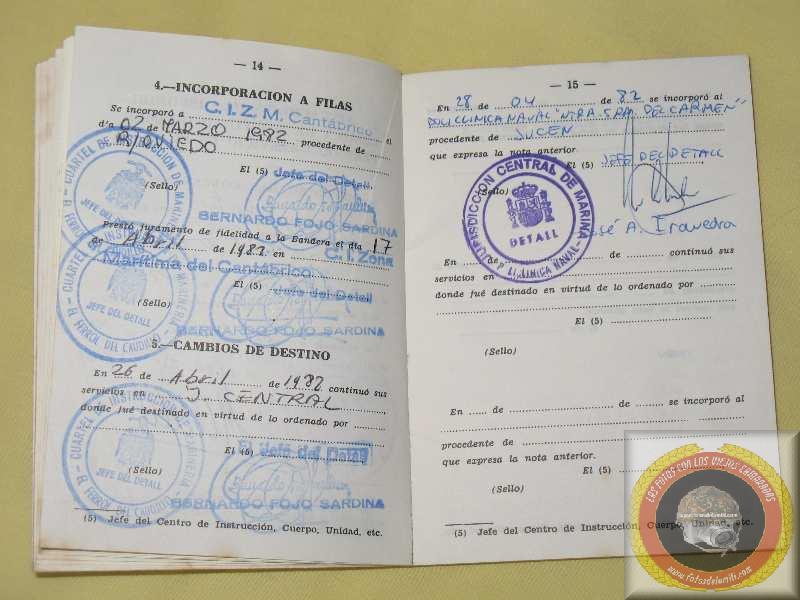 — 14 —
4.—INCORPORACION A FILAS
C. I. Z. M. Cantábrico
Se incorporó a ........ el
día 02 de MARZO 1982, procedente de
B/OVIEDO
El (5) Jefe del Detall
(Sello)
BERNARDO FOJO SARDINA
Prestó juramento de fidelidad a la Bandera el día 17
de Abril de 1982 en C. I. Zona
Marítima del Cantábrico
El (5) Jefe del Detall
(Sello)
BERNARDO FOJO SARDINA
5.—CAMBIOS DE DESTINO
En 26 de Abril de 1982 continuó sus
servicios en J. CENTRAL
donde fué destinado en virtud de lo ordenado por
El (5)
El Jefe del Detall
(Sello)
BERNARDO FOJO SARDINA
(5) Jefe del Centro de Instrucción, Cuerpo, Unidad, etc.
CUARTEL DE INSTRUCCION DE MARINERIA
JEFE DEL DETALL
EL FERROL DEL CAUDILLO
— 15 —
En 28 de 04 de 82 se incorporó al
POLICLINICA NAVAL "NTRA. SRA. DEL CARMEN"
procedente de JUCEN
que expresa la nota anterior.
El (5) JEFE DEL DETALL
(Sello)
José A. Iravedra
JURISDICCION CENTRAL DE MARINA
DETALL
POLICLINICA NAVAL
En ........ de ........ de ........ continuó sus
servicios en
donde fué destinado en virtud de lo ordenado por
El (5)
(Sello)
En ........ de ........ de ........ se incorporó al
procedente de
que expresa la nota anterior.
El (5)
(Sello)
(5) Jefe del Centro de Instrucción, Cuerpo, Unidad, etc.
LAS FOTOS CON LOS VIEJOS CAMARADAS
www.fotosdelamili.com